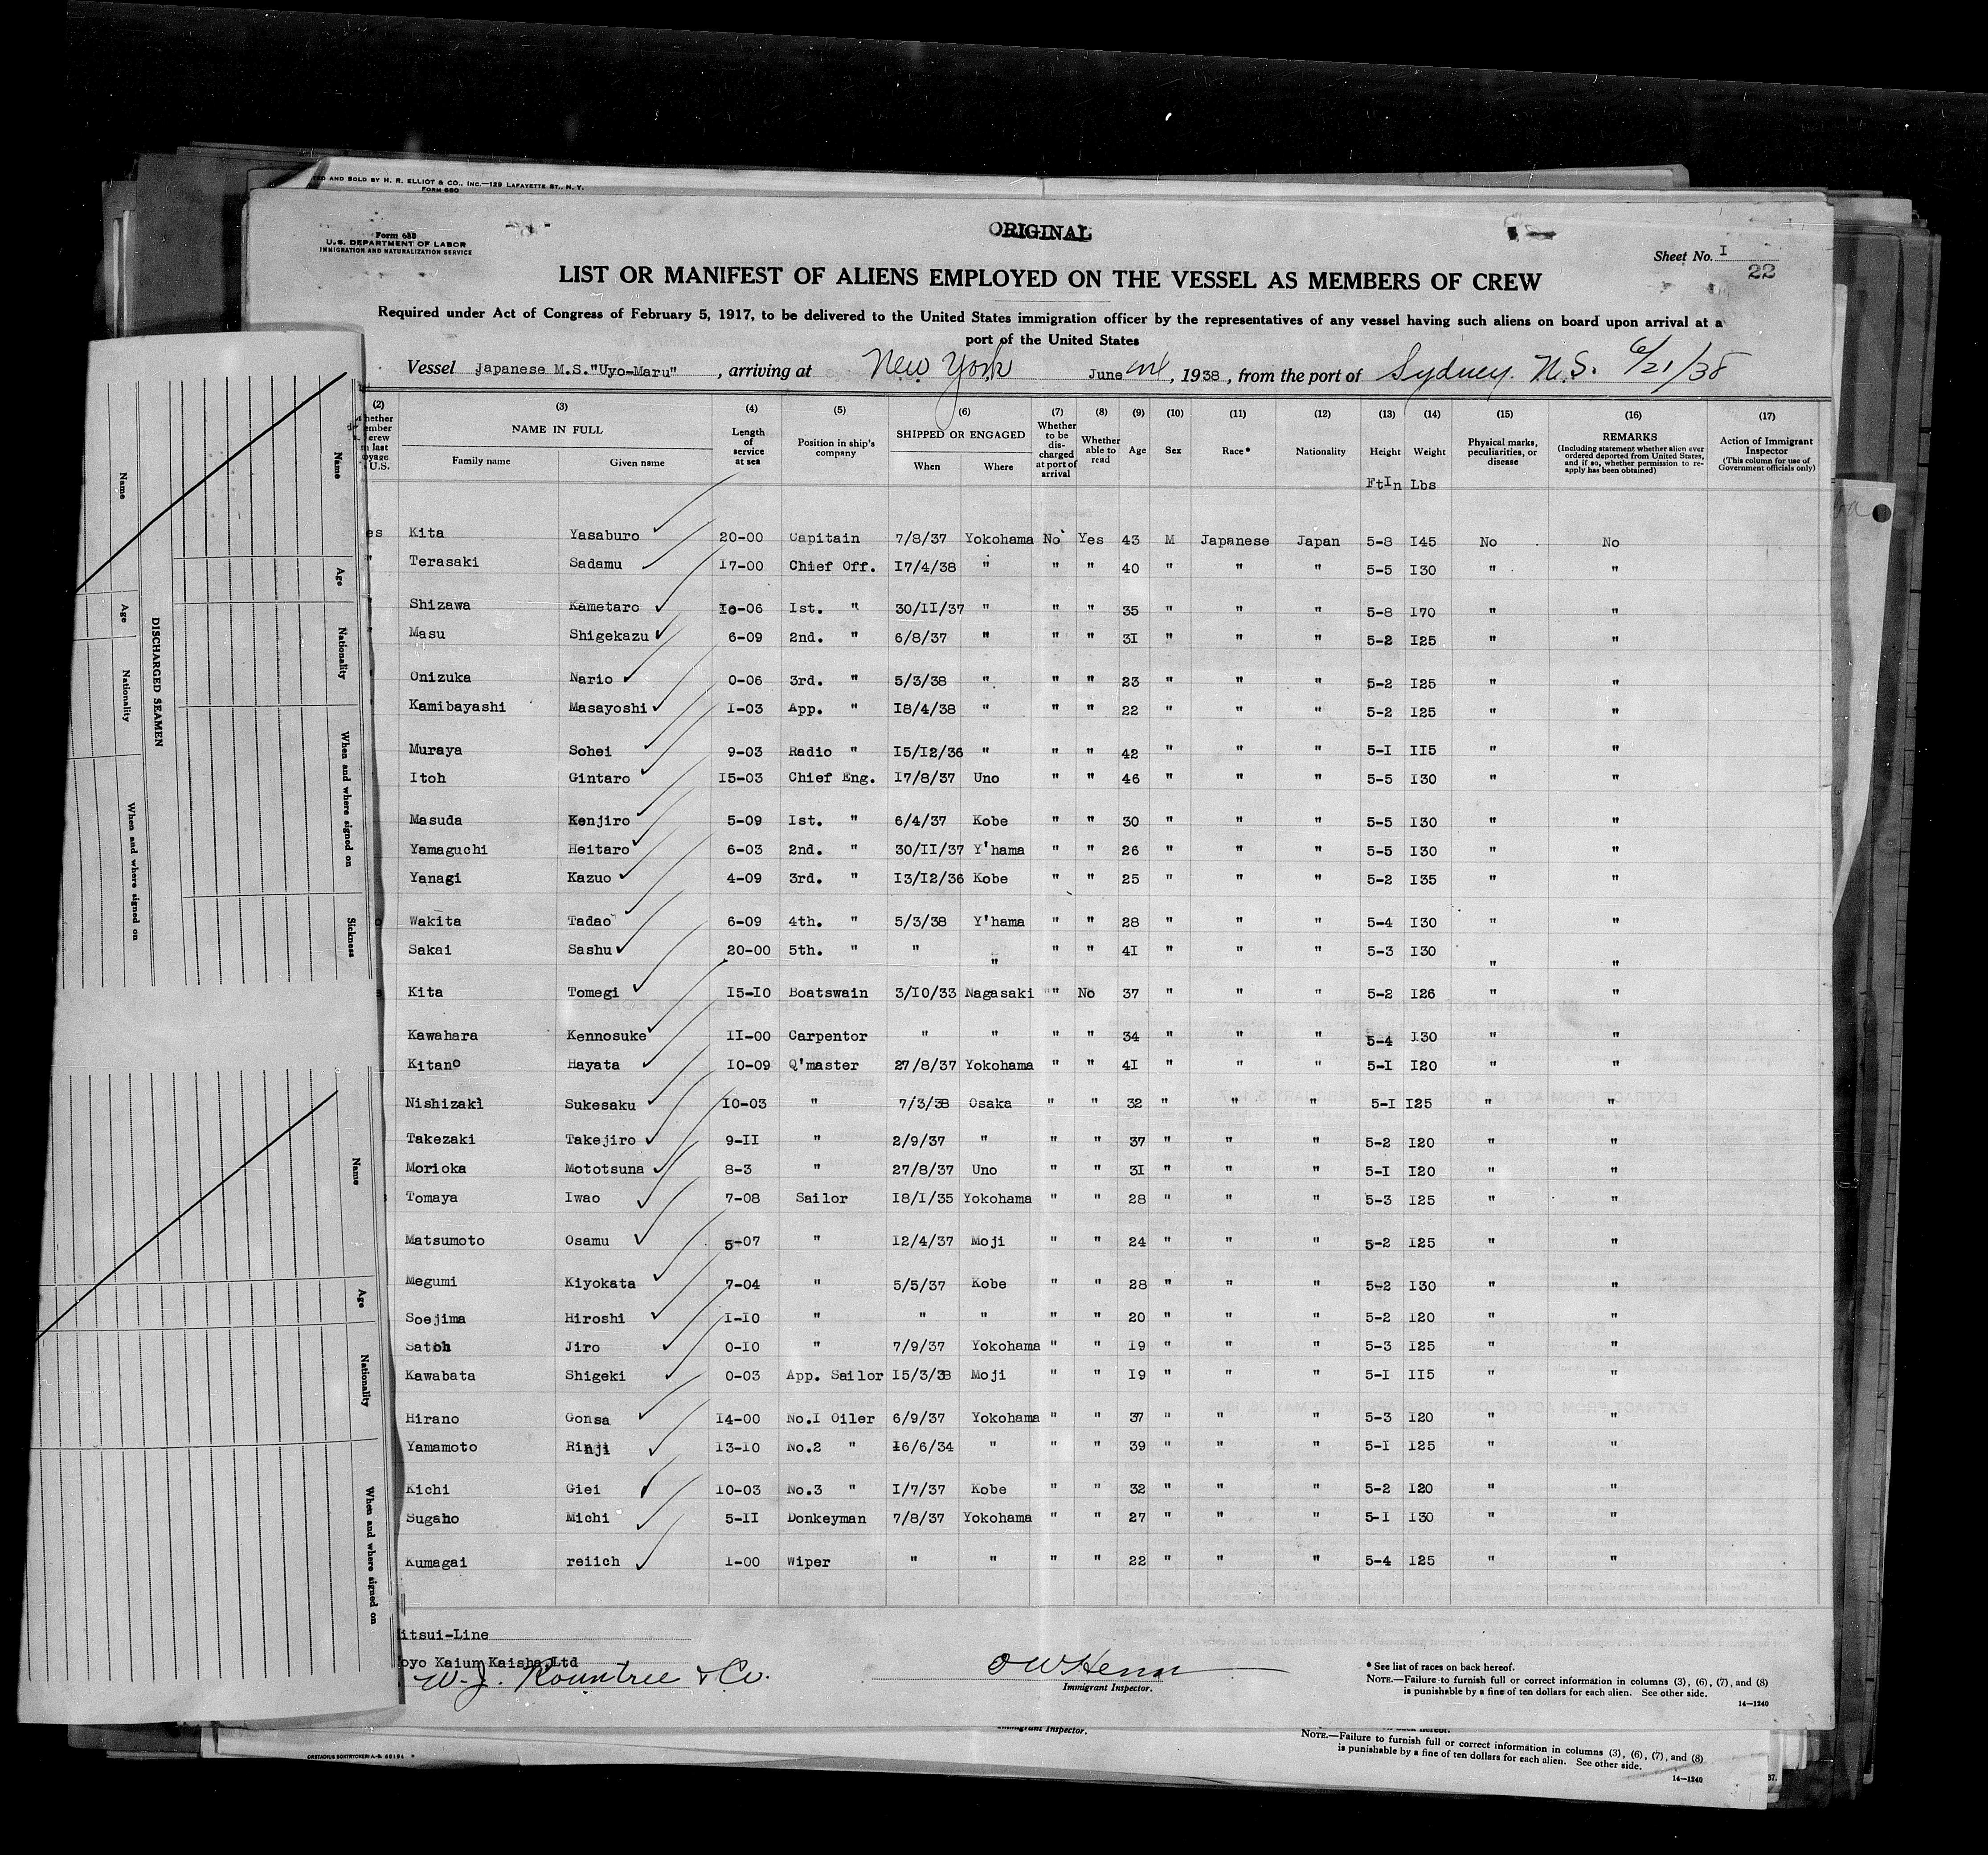 TED AND SOLD BY H. R. ELLIOT & CO., INC.—129 LAFAYETTE ST., N. Y.
FORM 680
Form 680
U.S. DEPARTMENT OF LABOR
IMMIGRATION AND NATURALIZATION SERVICE
ORIGINAL
Sheet No. I
22
LIST OR MANIFEST OF ALIENS EMPLOYED ON THE VESSEL AS MEMBERS OF CREW
Required under Act of Congress of February 5, 1917, to be delivered to the United States immigration officer by the representatives of any vessel having such aliens on board upon arrival at a
port of the United States
Vessel Japanese M.S."Uyo-Maru" , arriving at New York June , 1938 , from the port of Sydney. N.S. 6/21/38
(2) (3) (4) (5) (6) (7) (8) (9) (10) (11) (12) (13) (14) (15) (16) (17)
hether ember crew n last oyage U.S.
NAME IN FULL
Family name Given name
Length of service at sea
Position in ship's company
SHIPPED OR ENGAGED
When Where
Whether to be discharged at port of arrival
Whether able to read
Age Sex Race* Nationality Height Weight
Physical marks, peculiarities, or disease
REMARKS
(Including statement whether alien ever ordered deported from United States, and if so, whether permission to reapply has been obtained)
Action of Immigrant Inspector
(This column for use of Government officials only)
FtIn Lbs
es Kita Yasaburo 20-00 Capitain 7/8/37 Yokohama No Yes 43 M Japanese Japan 5-8 I45 No No
" Terasaki Sadamu I7-00 Chief Off. I7/4/38 " " " 40 " " " 5-5 I30 " "
" Shizawa Kametaro I0-06 Ist. " 30/II/37 " " " 35 " " " 5-8 I70 " "
" Masu Shigekazu 6-09 2nd. " 6/8/37 " " " 3I " " " 5-2 I25 " "
" Onizuka Nario 0-06 3rd. " 5/3/38 " " " 23 " " " 5-2 I25 " "
Kamibayashi Masayoshi I-03 App. " I8/4/38 " " " 22 " " " 5-2 I25 " "
Muraya Sohei 9-03 Radio " I5/I2/36 " " " 42 " " " 5-I II5 " "
Itoh Gintaro I5-03 Chief Eng. I7/8/37 Uno " " 46 " " " 5-5 I30 " "
Masuda Kenjiro 5-09 Ist. " 6/4/37 Kobe " " 30 " " " 5-5 I30 " "
Yamaguchi Heitaro 6-03 2nd. " 30/II/37 Y'hama " " 26 " " " 5-5 I30 " "
Yanagi Kazuo 4-09 3rd. " I3/I2/36 Kobe " " 25 " " " 5-2 I35 " "
o Wakita Tadao 6-09 4th. " 5/3/38 Y'hama " " 28 " " " 5-4 I30 " "
Sakai Sashu 20-00 5th. " " " " " 4I " " " 5-3 I30 " "
s Kita Tomegi I5-I0 Boatswain 3/I0/33 Nagasaki " No 37 " " " 5-2 I26 " "
Kawahara Kennosuke II-00 Carpentor " " " " 34 " " " 5-4 I30 " "
Kitano Hayata I0-09 Q'master 27/8/37 Yokohama " " 4I " " " 5-I I20 " "
Nishizaki Sukesaku I0-03 " 7/3/38 Osaka " " 32 " " " 5-I I25 " "
Takezaki Takejiro 9-II " 2/9/37 " " " 37 " " " 5-2 I20 " "
Morioka Mototsuna 8-3 " 27/8/37 Uno " " 3I " " " 5-I I20 " "
Tomaya Iwao 7-08 Sailor I8/I/35 Yokohama " " 28 " " " 5-3 I25 " "
Matsumoto Osamu 5-07 " I2/4/37 Moji " " 24 " " " 5-2 I25 " "
Megumi Kiyokata 7-04 " 5/5/37 Kobe " " 28 " " " 5-2 I30 " "
Soejima Hiroshi I-I0 " " " " " 20 " " " 5-2 I20 " "
Satoh Jiro 0-I0 " 7/9/37 Yokohama " " I9 " " " 5-3 I25 " "
Kawabata Shigeki 0-03 App. Sailor I5/3/38 Moji " " I9 " " " 5-I II5 " "
Hirano Gonsa I4-00 No.I Oiler 6/9/37 Yokohama " " 37 " " " 5-3 I20 " "
Yamamoto Rinji I3-I0 No.2 " I6/6/34 " " " 39 " " " 5-I I25 " "
Kichi Giei I0-03 No.3 " I/7/37 Kobe " " 32 " " " 5-2 I20 " "
Sugaho Michi 5-II Donkeyman 7/8/37 Yokohama " " 27 " " " 5-I I30 " "
Kumagai reiich I-00 Wiper " " " " 22 " " " 5-4 I25 " "
itsui-Line
oyo Kaiun Kaisha,Ltd
W. J. Rountree & Co.
Immigrant Inspector.
* See list of races on back hereof.
NOTE.—Failure to furnish full or correct information in columns (3), (6), (7), and (8)
is punishable by a fine of ten dollars for each alien. See other side.
14—1240
Immigrant Inspector.
on back hereof.
NOTE.—Failure to furnish full or correct information in columns (3), (6), (7), and (8)
is punishable by a fine of ten dollars for each alien. See other side.
14—1240
37.
DISCHARGED SEAMEN
Name Age Nationality When and where signed on
Name Age Nationality When and where signed on Sickness
Name Age Nationality When and where signed on